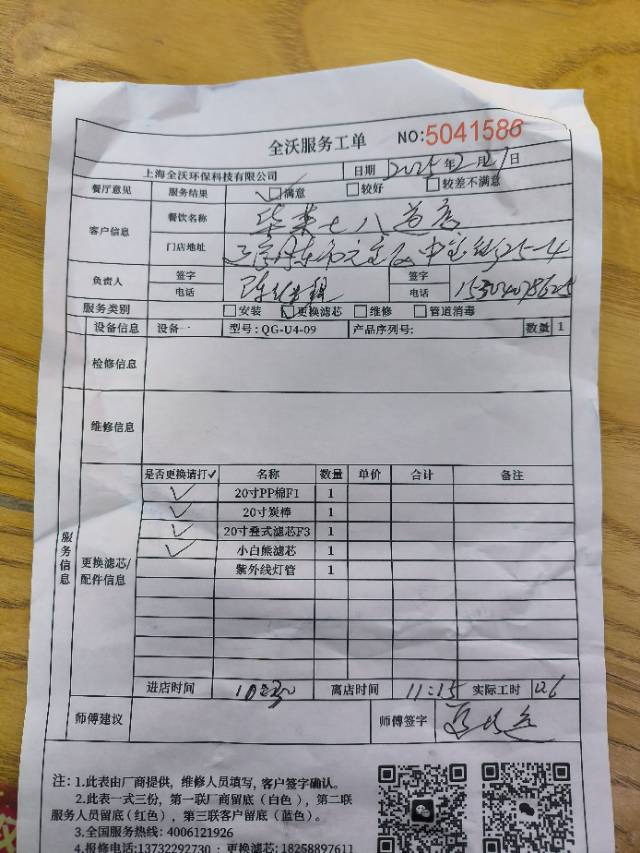 全沃服务工单 NO:5041586
上海全沃环保科技有限公司 日期 2025年2月21日
餐厅意见 服务结果 ✓□满意 □较好 □较差不满意
客户信息 餐饮名称 七八道店
门店地址 525-4
负责人 签字 签字
电话 电话
服务类别 □安装 ☑更换滤芯 □维修 □管道消毒
设备信息 设备一 型号:QG-U4-09 产品序列号: 数量 1
检修信息
维修信息
服务信息
更换滤芯/配件信息
是否更换请打✓ 名称 数量 单价 合计 备注
✓ 20寸PP棉F1 1
✓ 20寸炭棒 1
✓ 20寸叠式滤芯F3 1
✓ 小白熊滤芯 1
紫外线灯管 1
进店时间 10:30 离店时间 11:15 实际工时
师傅建议 师傅签字
注:1.此表由厂商提供,维修人员填写,客户签字确认。
2.此表一式三份,第一联厂商留底(白色),第二联
服务人员留底(红色),第三联客户留底(蓝色)。
3.全国服务热线:4006121926
4.报修电话:13732292730·更换滤芯:18258897611